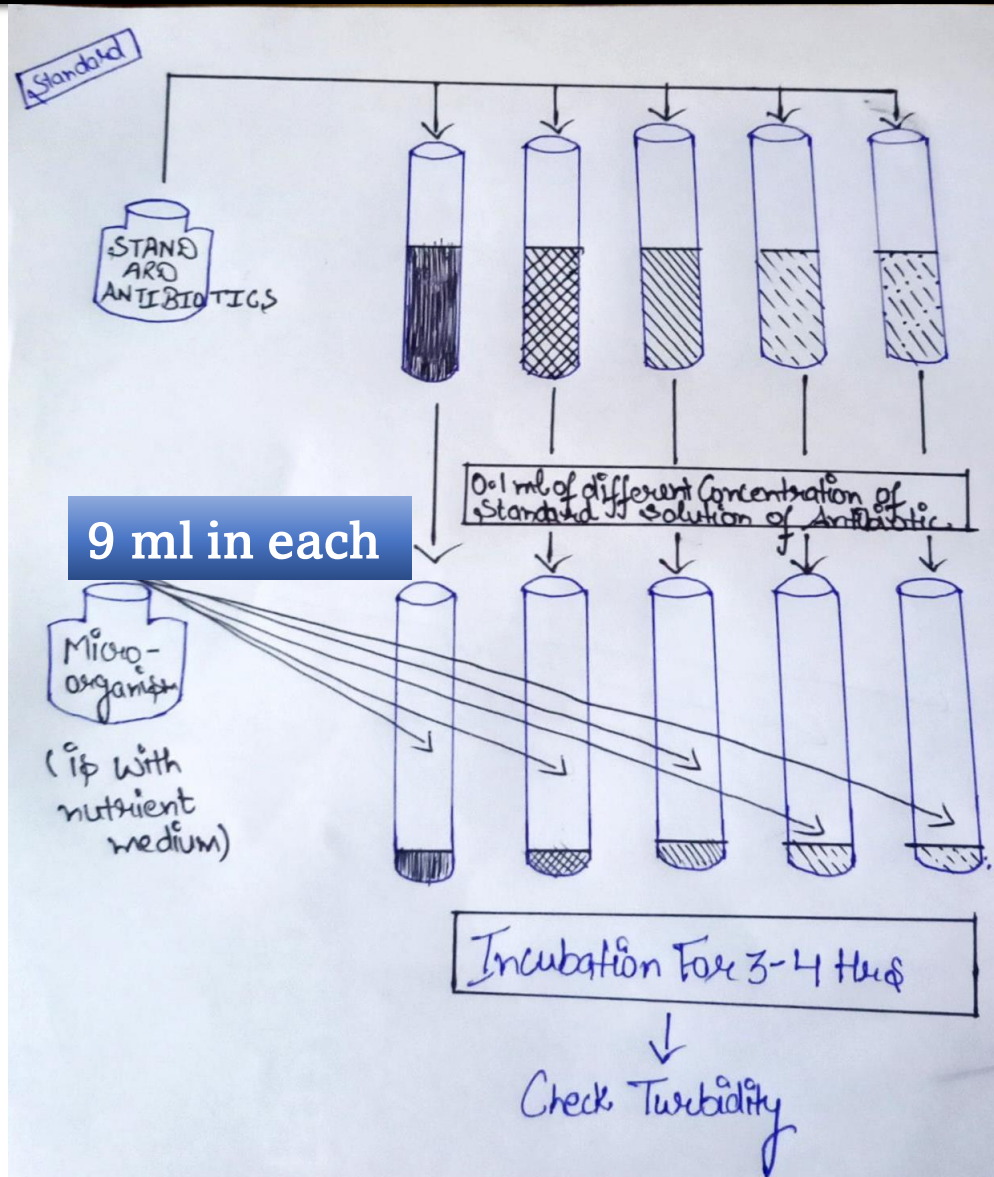 Standard
STAND
ARD
ANTIBIOTICS
0.1 ml of different Concentration of
Standard solution of Antibiotic.
9 ml in each
Micro-
organism
(is with
nutrient
medium)
Incubation For 3-4 Hrs
Check Turbidity